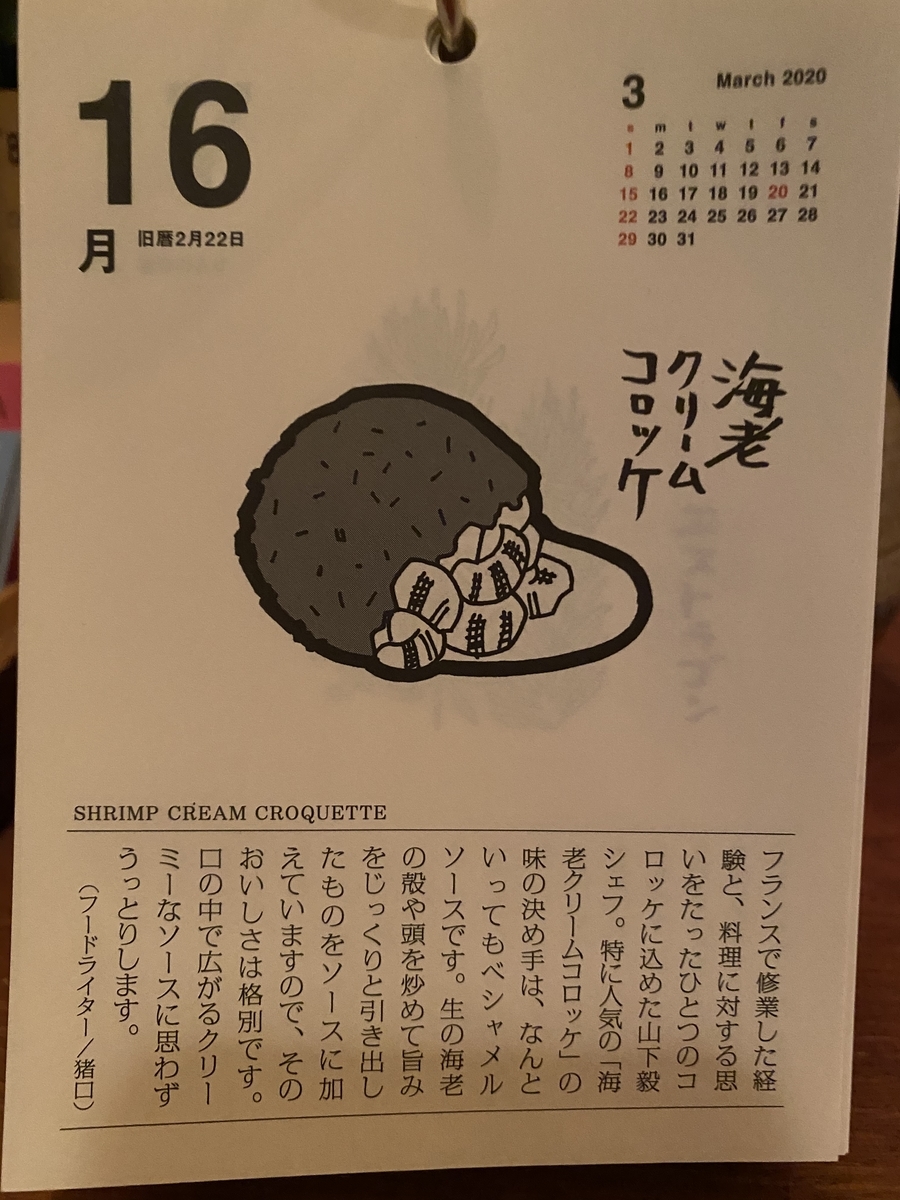 16
月 旧暦2月22日
3 March 2020
s m t w t f s
1 2 3 4 5 6 7
8 9 10 11 12 13 14
15 16 17 18 19 20 21
22 23 24 25 26 27 28
29 30 31
海老
クリーム
コロッケ
SHRIMP CREAM CROQUETTE
フランスで修業した経
験と、料理に対する思
いをたったひとつのコ
ロッケに込めた山下毅
シェフ。特に人気の「海
老クリームコロッケ」の
味の決め手は、なんと
いってもベシャメル
ソースです。生の海老
の殻や頭を炒めて旨み
をじっくりと引き出し
たものをソースに加
えていますので、その
おいしさは格別です。
口の中で広がるクリー
ミーなソースに思わず
うっとりします。
（フードライター／猪口）